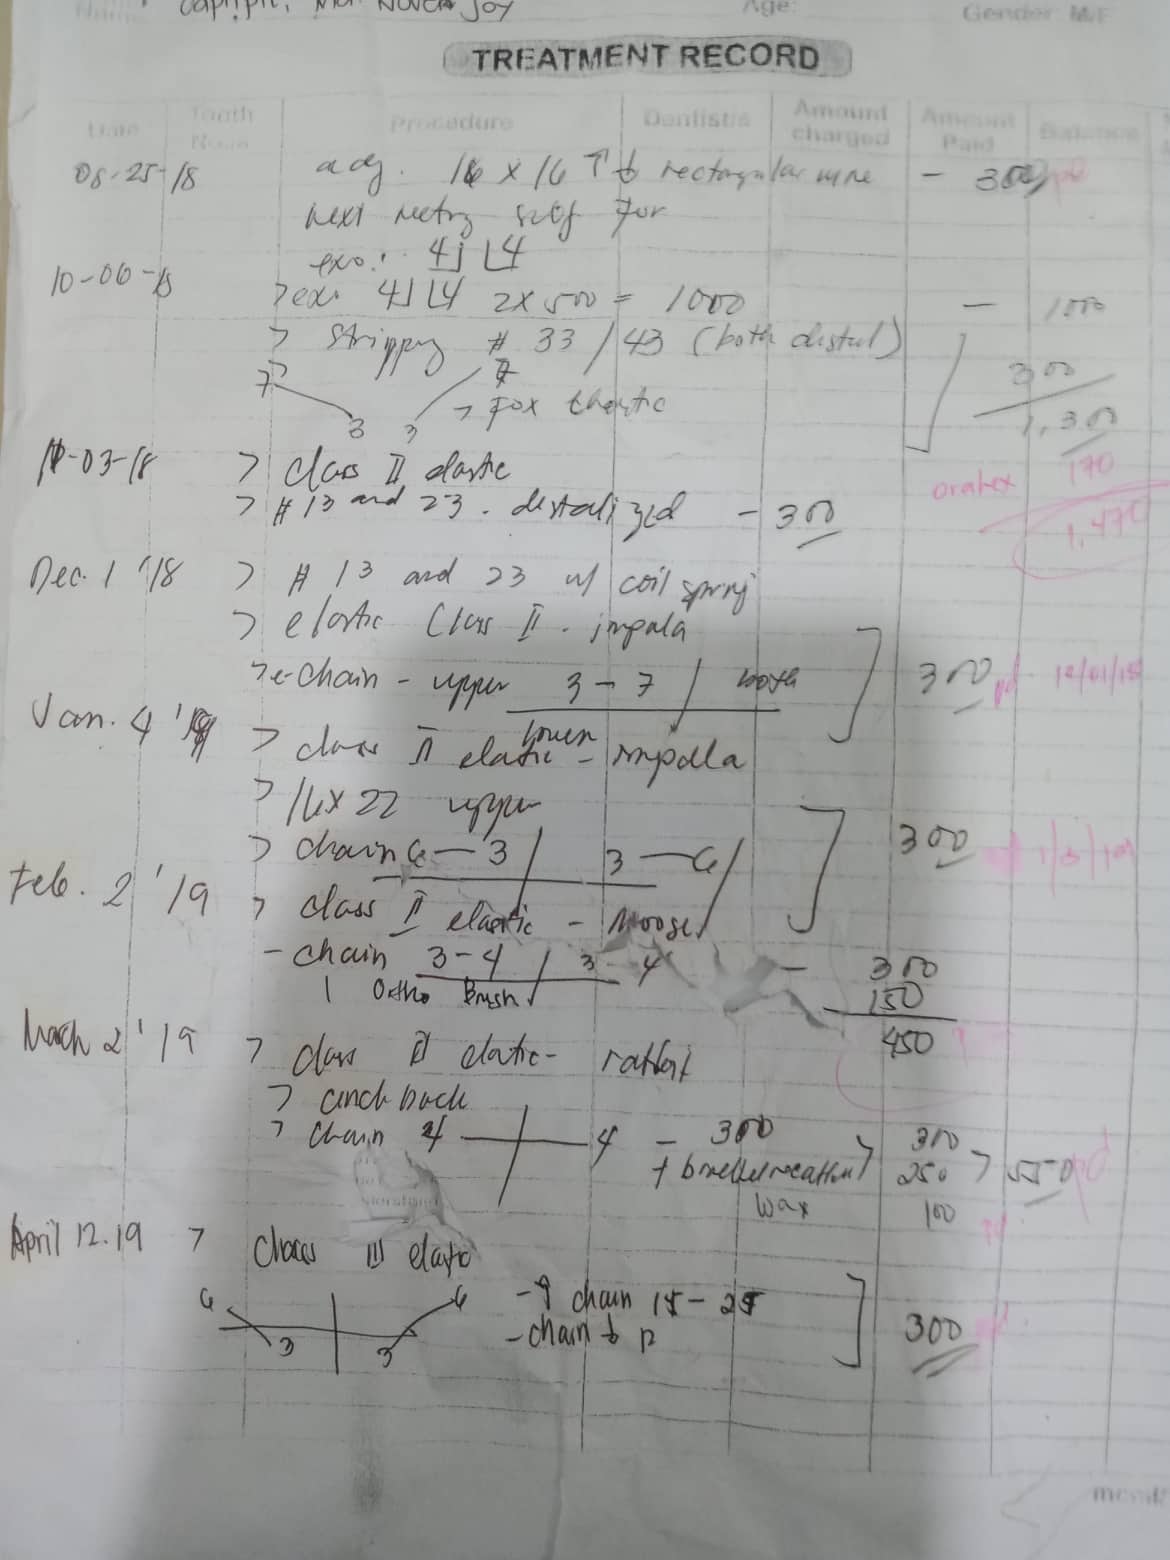 Name Joy Age: Gender M/F
TREATMENT RECORD
Date Tooth Procedure Dentist/s Amount charged Amount Paid Balance
08-25-18 adj. 16 x 16 ↑↓ rectangular wire - 300
next for
exo: 4⌋ ⌊4
10-06-18 > exo 4⌋ ⌊4 2 x 500 = 1000 - 1000
> stripping # 33 / 43 (both distal)
7 7 300
3 3 > Fox Elastic 1,300
11-03-18 > class II elastic oratex 170
> # 13 and 23. distalized - 300 1,470
Dec. 1 '18 > # 13 and 23 w/ coil spring
> elastic Class II. impala
> e-chain - upper 3 - 7 / both 300 pd 12/01/18
lower
Jan. 4 '19 > class II elastic - impalla
> 16x22 upper
> chain 6 — 3 / 3 — 6 / 300
Feb. 2 '19 > class II elastic - Moose
- chain 3-4 / 3-4 - 300
1 Ortho Brush 150
450
March 2 '19 > class II elastic - rabbit
> cinch back
> chain 4 — 4 - 300 300
+ 250 > 550 pd
wax 100 pd
April 12.19 > Class III elastic
6 6 - ↑ chain 15 - 25
3 3 - chain ↓ 300